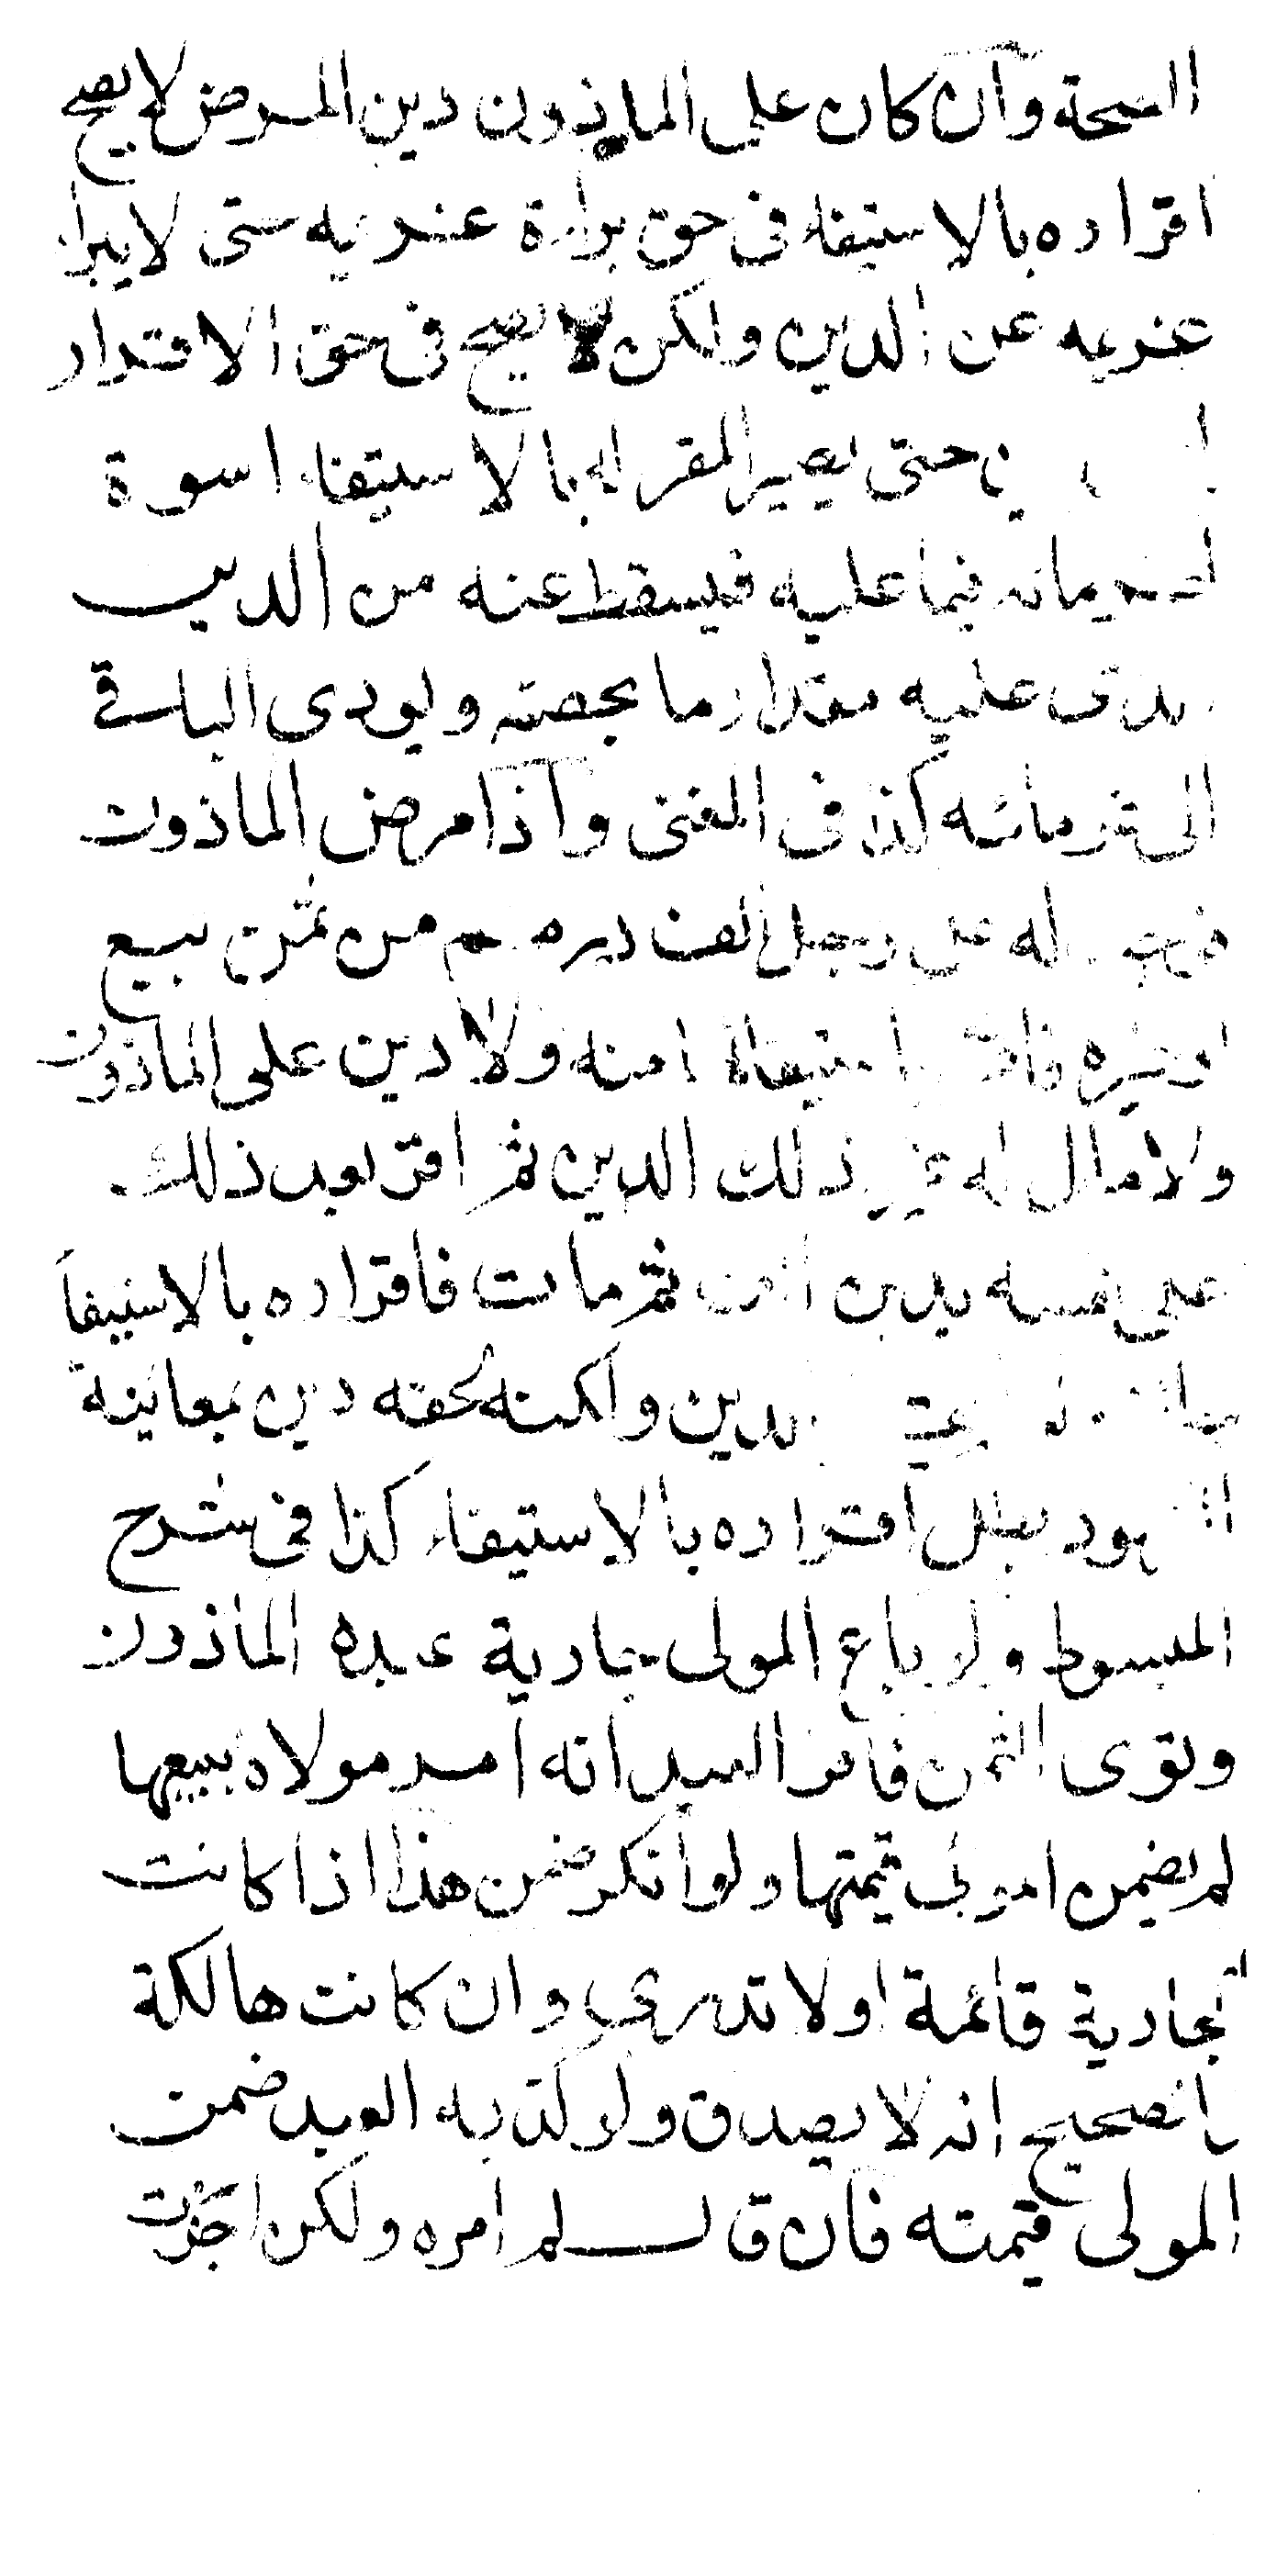 الصحة وان كان على الماذون دين المرض لا يصح
اقراره بالاستيفاء في حق براءة غريمه حتى لا يبرأ
غريمه عن الدين ولكن لا يصح في حق الاقرار
حتى يصير المقر له بالاستيفاء اسوة
لغرمائه فيما عليه فيسقط عنه من الدين
الذي عليه مقدار ما بحصته ويودى الباقي
الى غرمائه كذا في المغنى واذا مرض الماذون
فوجب له على رجل الف درهم من ثمن بيع
او غيره فاقر باستيفاء منه ولا دين على الماذون
ولا مال له غير ذلك الدين ثم اقر بعد ذلك
على نفسه بدين الف ثم مات فاقراره بالاستيفاء
بدين ولكنه لحقه دين بمعاينة
الشهود بطل اقراره بالاستيفاء كذا في شرح
المبسوط ولو باع المولى جارية عبده الماذون
وتوى الثمن فاقر العبد انه امر مولاه ببيعها
لم يضمن المولى قيمتها ولو انكر ضمن هذا اذا كانت
الجارية قائمة او لا تدرى وان كانت هالكة
الصحيح انه لا يصدق ولو كذبه العبد ضمن
المولى قيمته فان قال لم امره ولكن اجزت